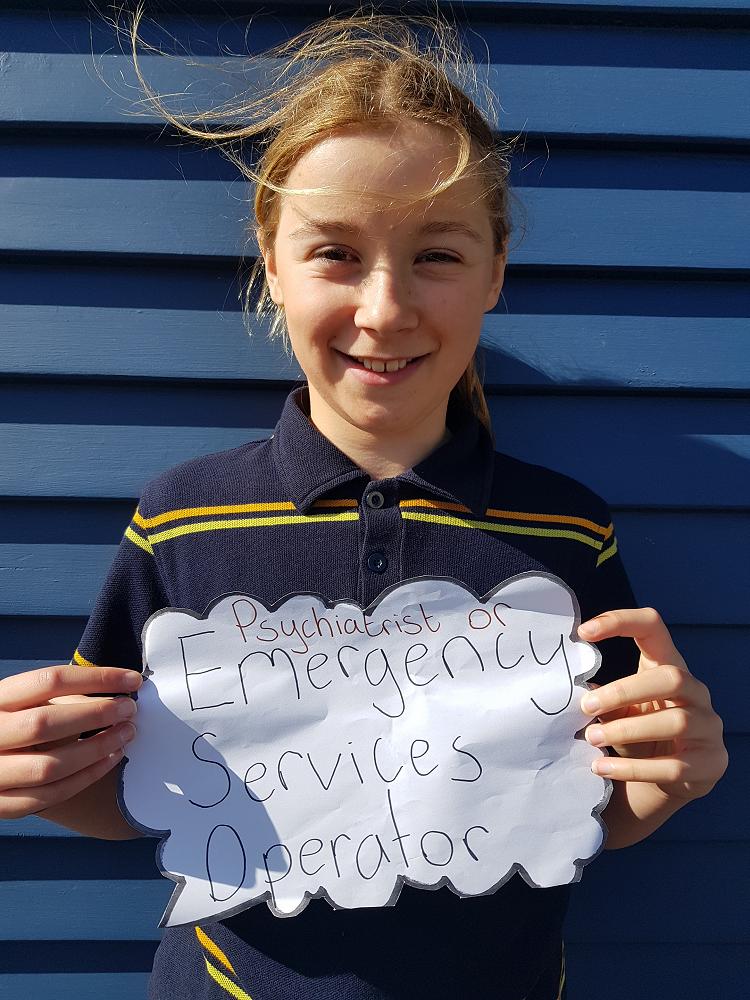 Psychiatrist or
Emergency
Services
Operator